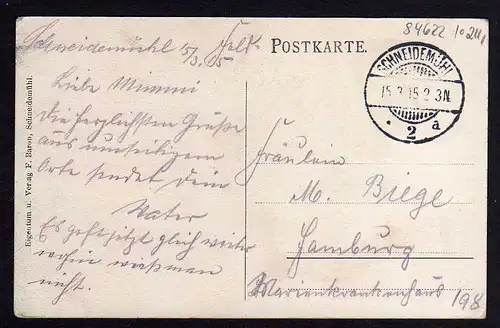 84622 10 2411
Schneidemühl 15/3 15
POSTKARTE.
SCHNEIDEMÜHL
15.3.15.2-3N.
* 2 a
Liebe Mimmi
Die herzlichsten Grüße
aus
Orte sendet Dein
Vater
Es geht jetzt gleich weiter
wohin wissen
nicht.
Fräulein
M. Biege
Hamburg
Marienkrankenhaus
198
Eigentum u. Verlag F. Baron, Schneidemühl.